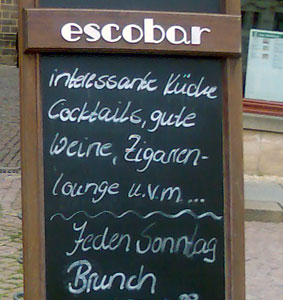 escobar
interessante Küche
Cocktails, gute
Weine, Zigarren-
lounge u.v.m....
Jeden Sonntag
Brunch